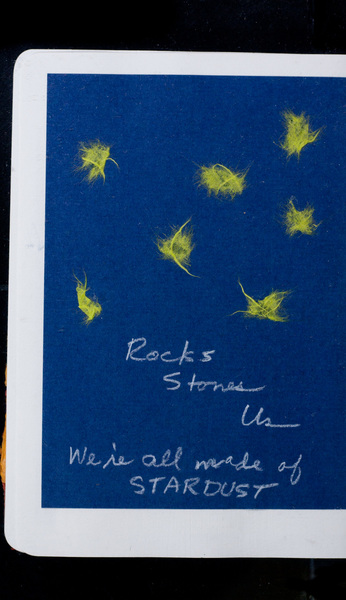 Rocks
Stones
Us
We're all made of
STARDUST